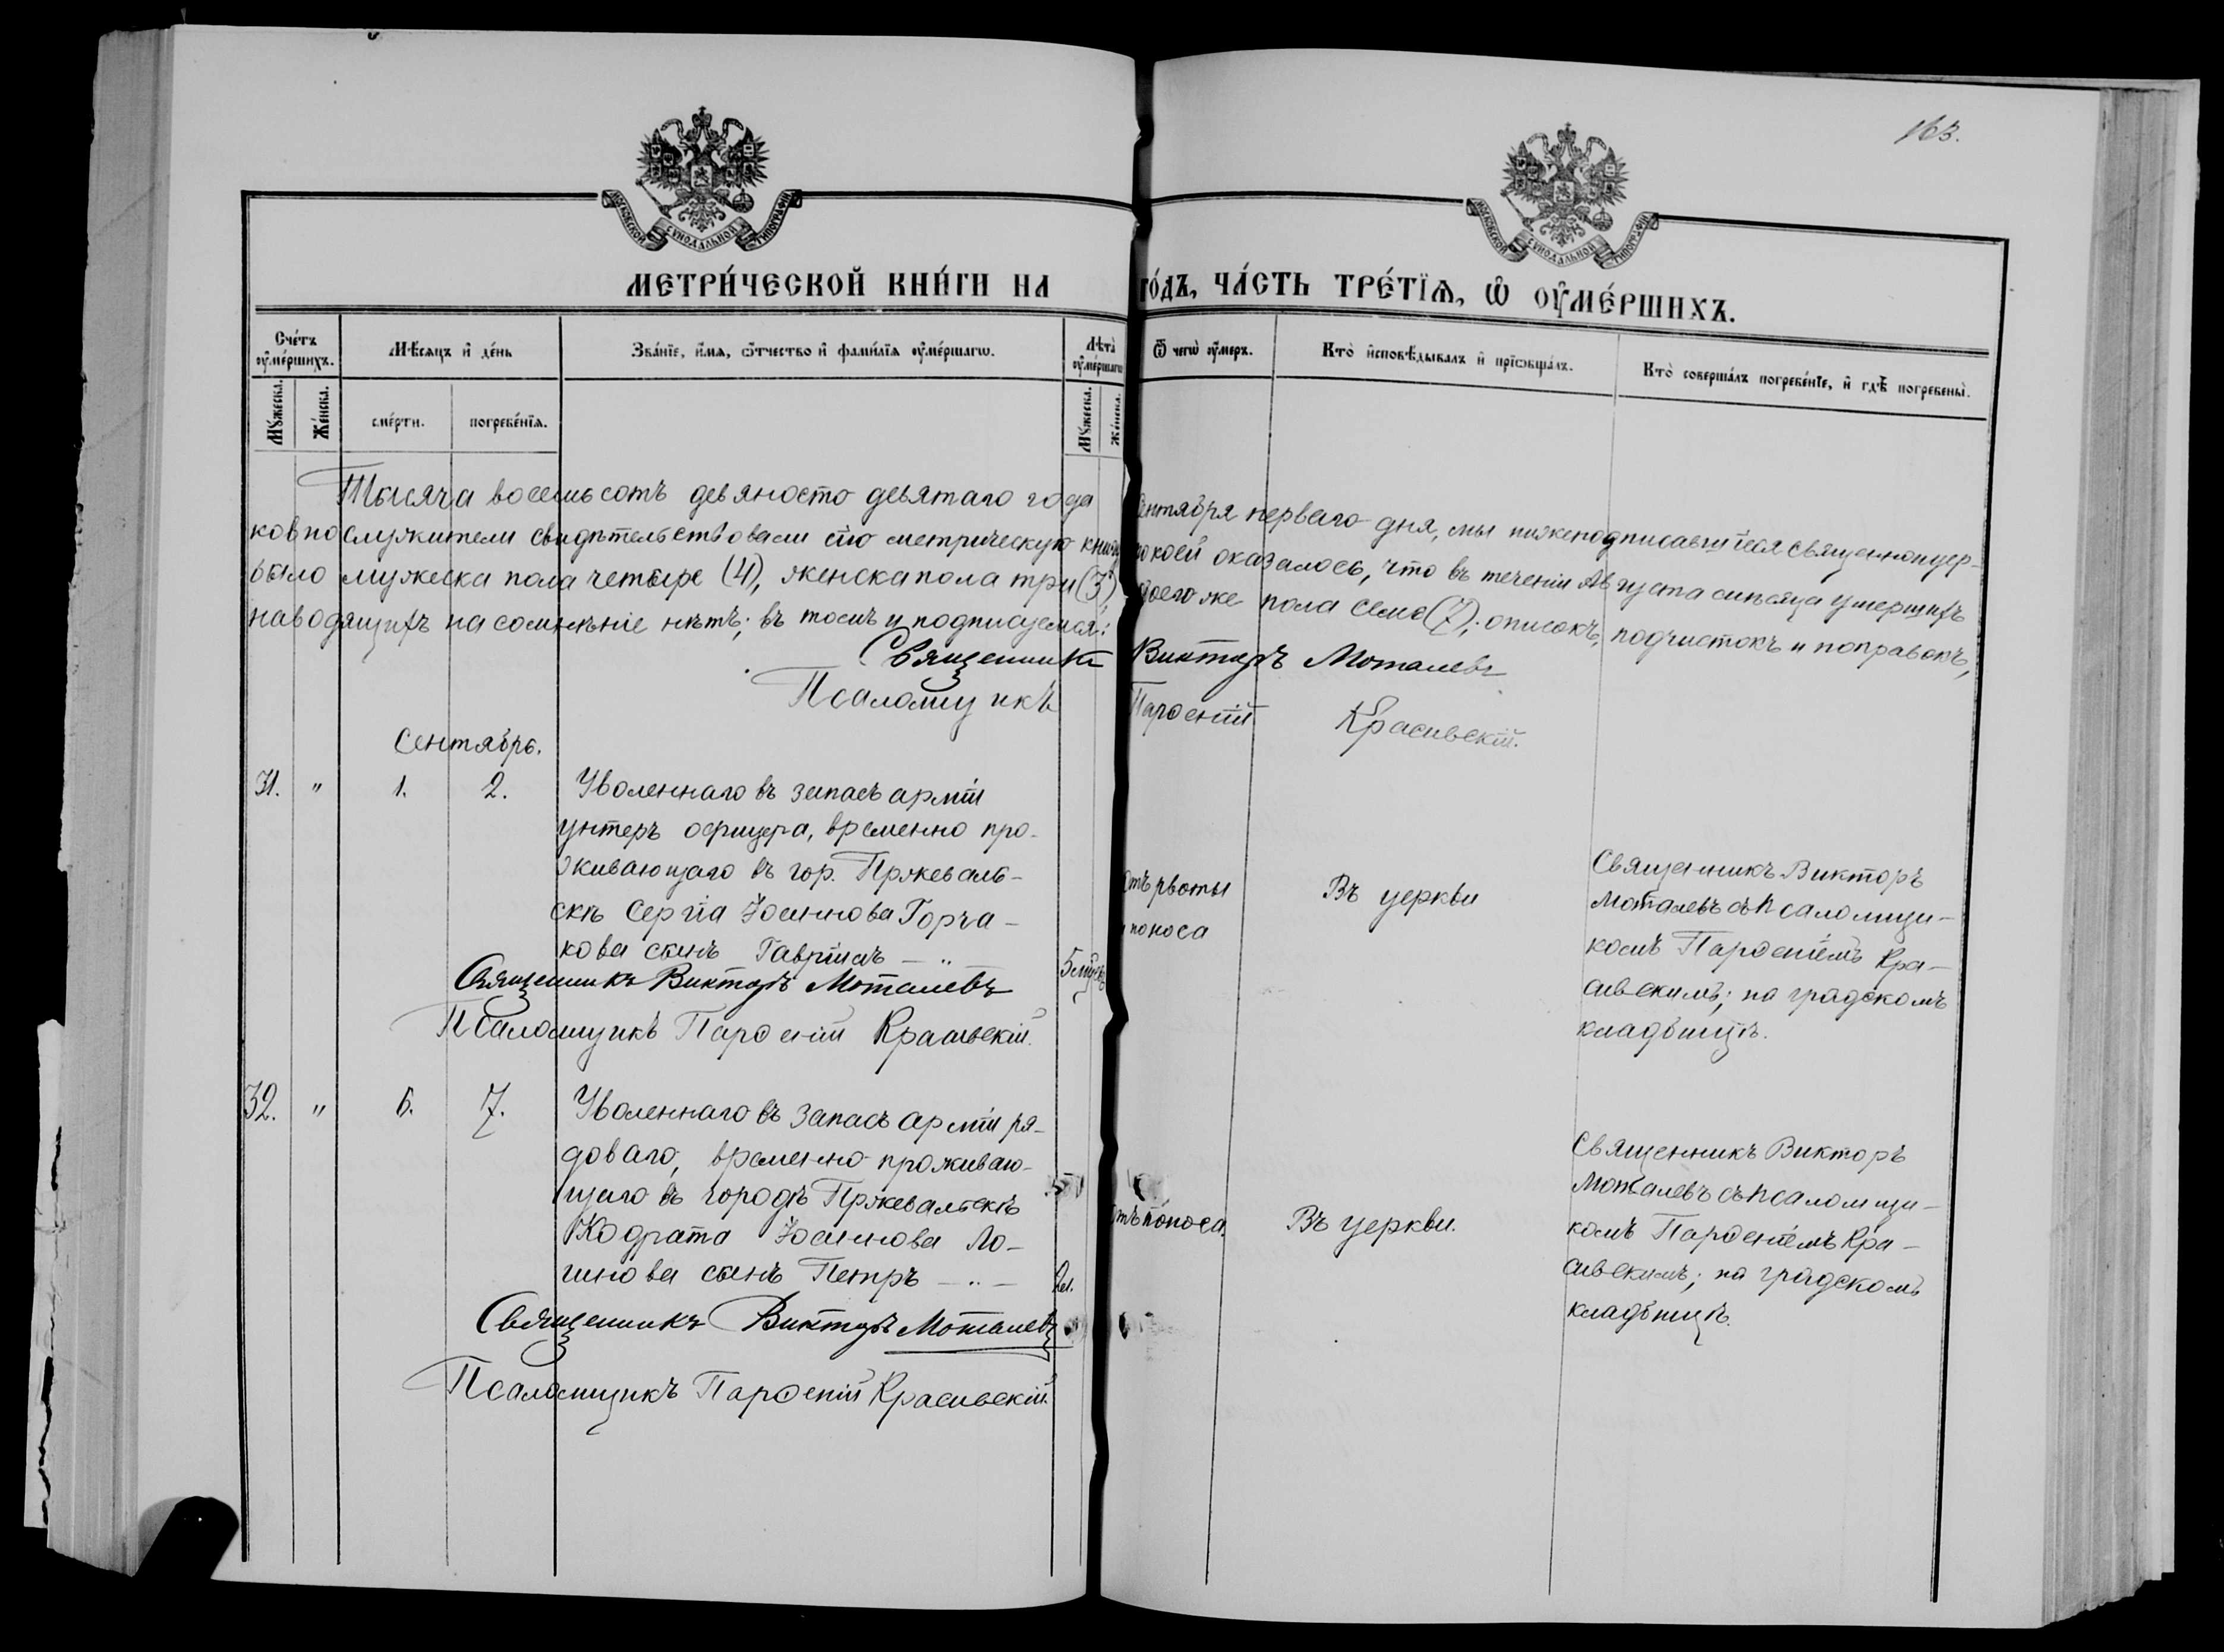 163.
МОСКОВСКОЙ СѴНОДАЛЬНОЙ ТИПОГРАФІИ
МОСКОВСКОЙ СѴНОДАЛЬНОЙ ТИПОГРАФІИ
МЕТРИ́ЧЕСКОЙ КНИ́ГИ НА ГО́ДЪ, ЧА́СТЬ ТРЕ́ТЇѦ, Ѡ҆ ОУ҆МЕ́РШИХЪ.
Сче́тъ оу҆ме́ршихъ.
Мѣ́сяцъ и҆ де́нь
Зва́нїе, и҆́мѧ, ѻ҆́тчество и҆ фами́лїѧ оу҆ме́ршагѡ.
Лѣ́та̀ оу҆ме́ршагѡ
Ѿ чегѡ̀ оу҆́меръ.
Кто̀ и҆сповѣ́дывалъ и҆ прїѡбща́лъ.
Кто̀ соверша́лъ погребе́нїе, и҆ гдѣ̀ погребены̀.
Мꙋ́жеска.
Же́нска.
сме́рти.
погребе́нїѧ.
Мꙋ́жеска.
Же́нска.
Тысяча восемьсотъ девяносто девятаго года сентября перваго дня, мы нижеподписавшіеся священноцер-
ковнослужители свидѣтельствовали сію метрическую книгу по коей оказалось, что въ теченіи Августа мѣсяца умершихъ
было мужеска пола четыре (4), женска пола три (3), обоего же пола семь (7); описокъ, подчистокъ и поправокъ,
наводящихъ на сомнѣніе нѣтъ; въ томъ и подписуемся:
Священникъ Викторъ Моталевъ
Псаломщикъ Парѳеній Красивскій.
Сентябрь.
31. " 1. 2. Уволеннаго въ запасъ арміи
унтеръ офицера, временно про-
живающаго въ гор. Пржеваль-
скѣ Сергія Іоаннова Горча-
кова сынъ Гавріилъ — " —
5 мѣс.
отъ рвоты
и поноса
Въ церкви
Священникъ Викторъ
Моталевъ съ псаломщи-
комъ Парѳеніемъ Кра-
сивскимъ; на градскомъ
кладбищѣ.
Священникъ Викторъ Моталевъ
Псаломщикъ Парѳеній Красивскій.
32. " 6. 7. Уволеннаго въ запасъ арміи ря-
доваго, временно проживаю-
щаго въ городѣ Пржевальскѣ
Кодрата Іоаннова Ло-
гинова сынъ Петръ — " —
отъ поноса.
Въ церкви.
Священникъ Викторъ
Моталевъ съ псаломщи-
комъ Парѳеніемъ Кра-
сивскимъ; на градскомъ
кладбищѣ.
Священникъ Викторъ Моталевъ
Псаломщикъ Парѳеній Красивскій.